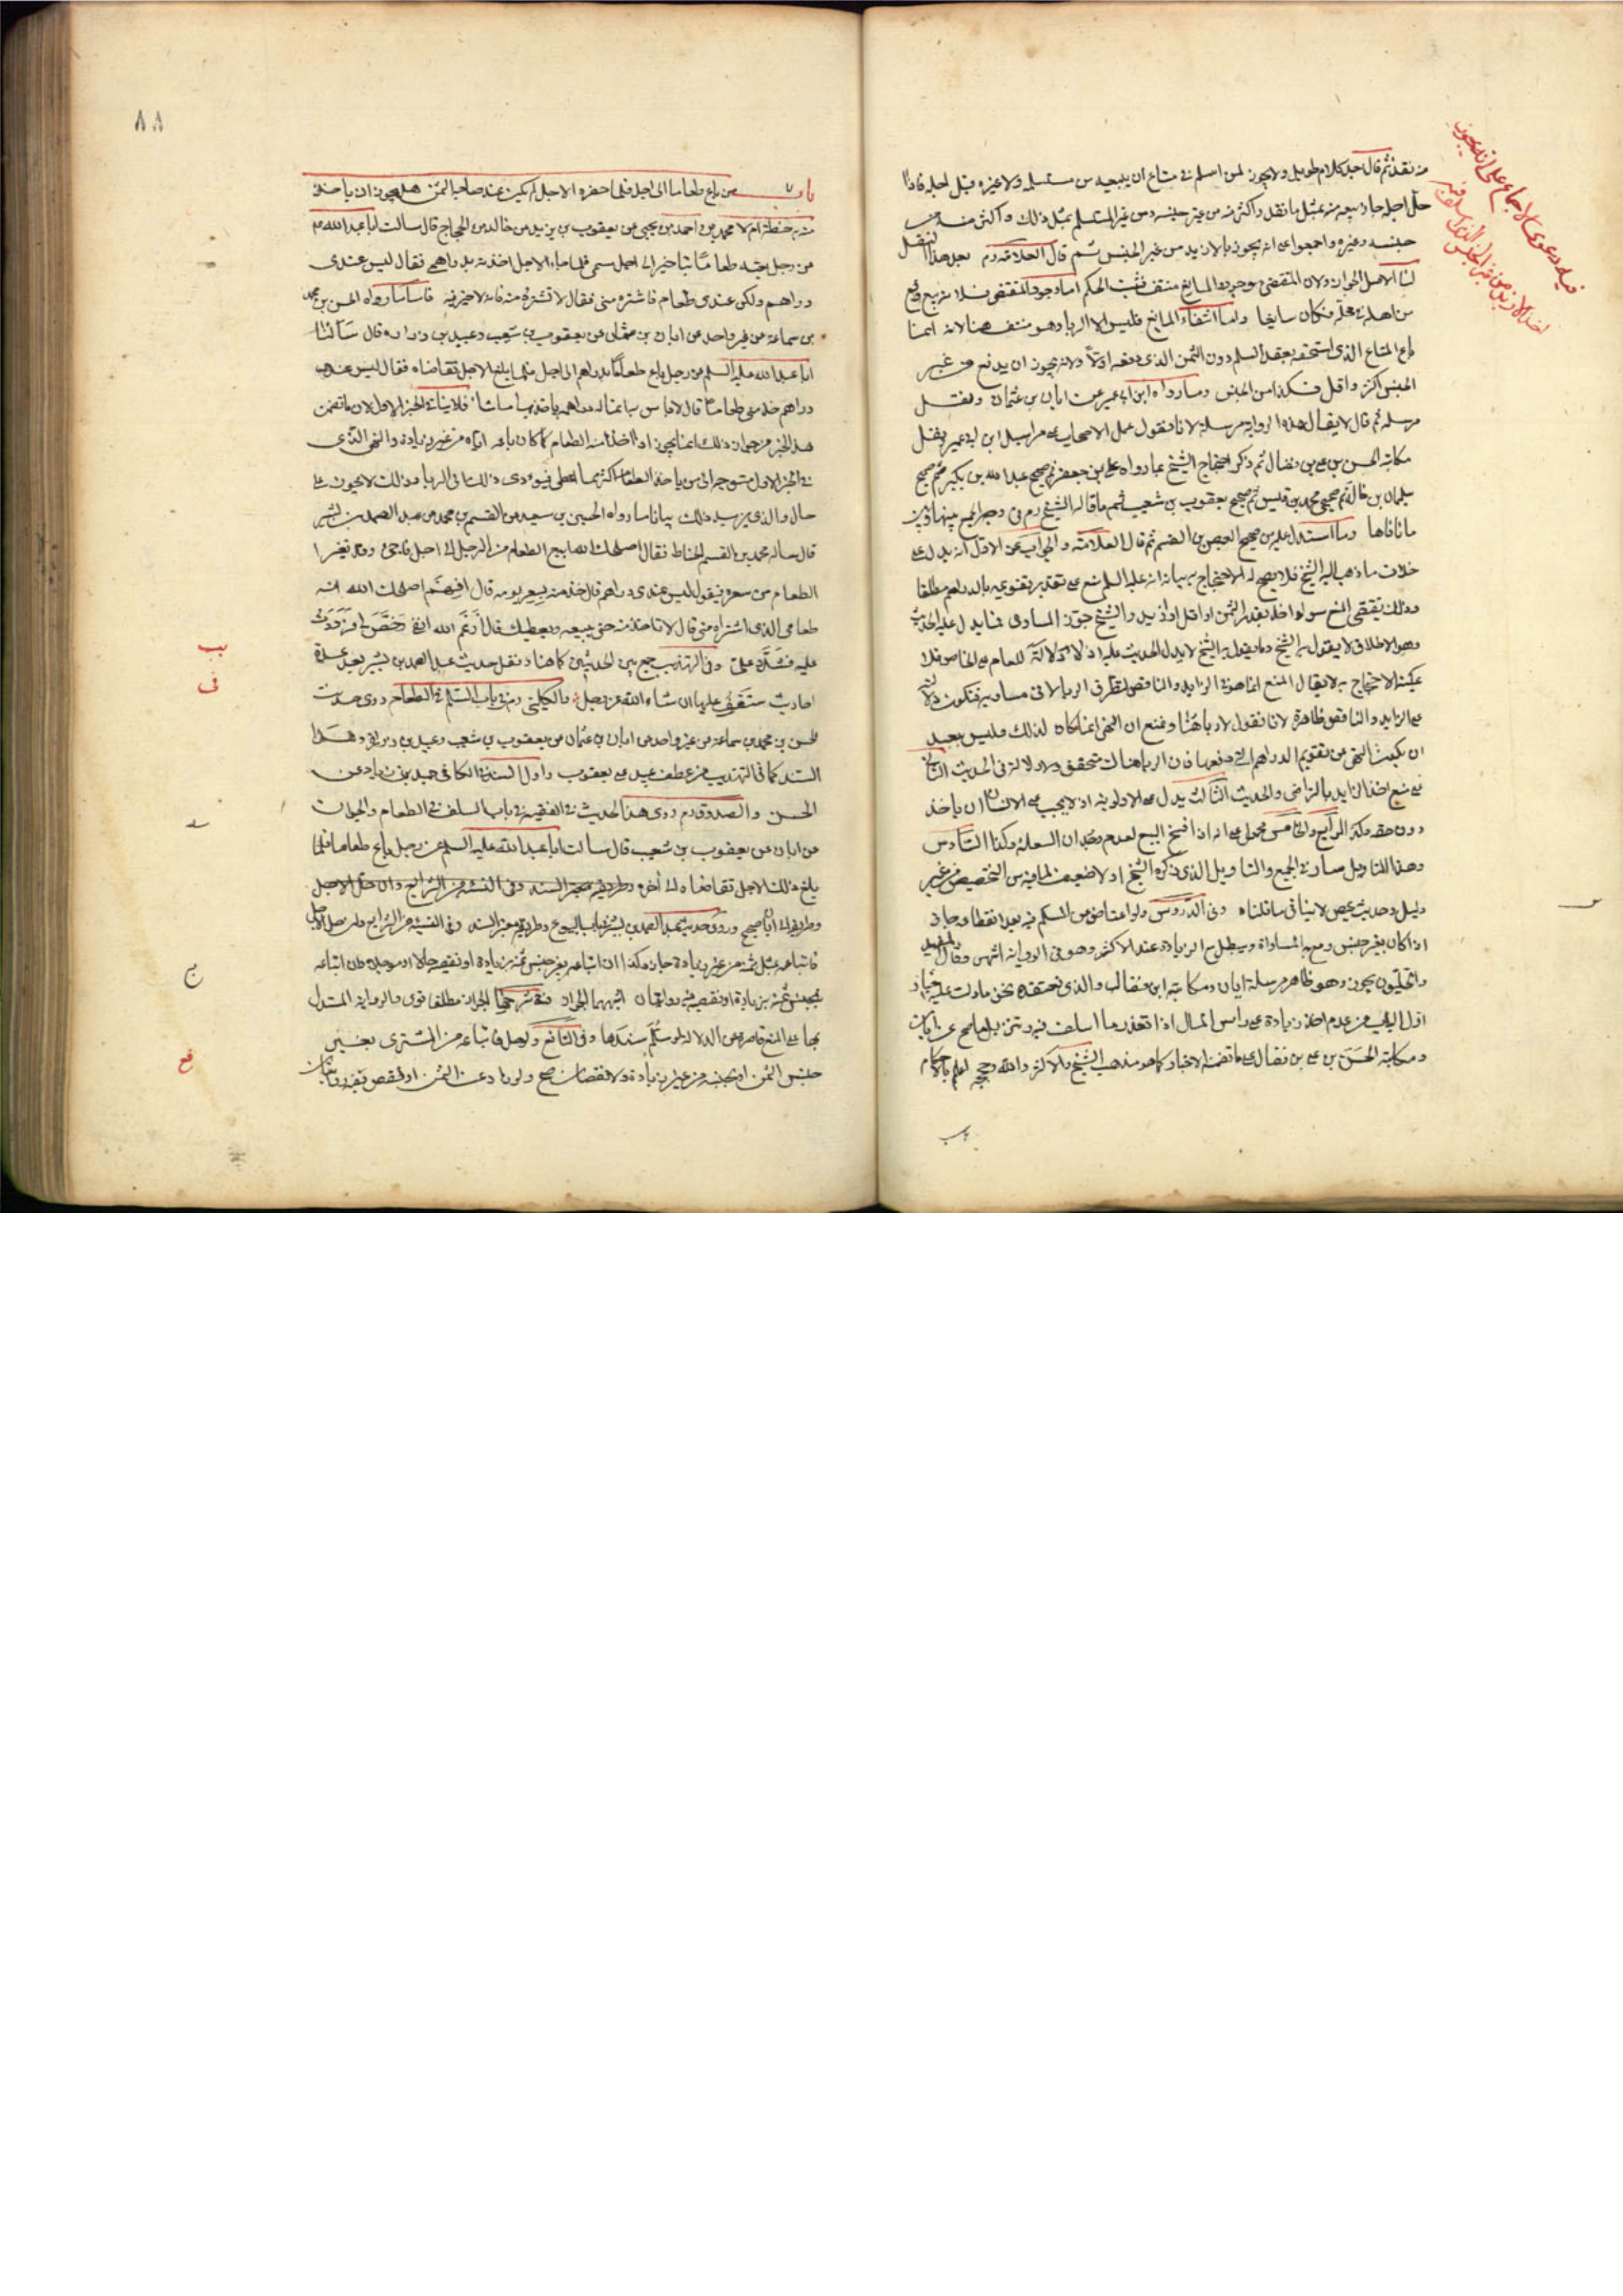 من نقد ثم قال بعد كلام طويل ولا يجوز لمن اسلم في متاع ان يبيعه من مستسلمه ولا غيره قبل اجله فاذا
حل اجله جاز بيعه منه بمثل ما نقد واكثر منه من غير جنسه ومن غير المستسلم بمثل ذلك واكثر منه من
جنسه وغيره واجمعوا على انه يجوز بالازيد من غير الجنس ثم قال العلامة ره بعد هذا النقل
لنا الاصل الجواز ولان المقتضي موجود والمانع منتف فثبت الحكم اما وجود المقتضي فلانه بيع وقع
من اهله في محله فكان سايغا واما انتفاء المانع فليس الا الربا وهو منتف هنا لانه انما
باع المتاع الذي استحقه بعقد السلم دون الثمن الذي دفعه اولا ولانه يجوز ان يدفع من غير
الجنس اكثر واقل فكذا من الجنس وما رواه ابن ابي عمير عن ابان بن عثمان ونقل
مرسله ثم قال لا يقال هذه الرواية مرسلة لانا نقول عمل الاصحاب على مراسيل ابن ابي عمير ونقل
مكاتبة الحسن بن علي بن فضال ثم ذكر احتجاج الشيخ بما رواه علي بن جعفر ثم صحيح عبد الله بن بكير ثم صحيح
سليمان بن خالد ثم صحيح محمد بن قيس ثم صحيح يعقوب بن شعيب ثم ما قاله الشيخ ره في وجه الجمع بينها وبين
ما نافاها وما استدل عليه من صحيح العيص بن القسم ثم قال العلامة والجواب عن الاول انه يدل على
خلاف ما ذهب اليه الشيخ فلا يصح له الاحتجاج به بيانه انه عليه السلم منع على تقدير تقويمه بالدراهم مطلقا
وذلك يقتضي المنع سواء اخذ بقدر الثمن او اقل او ازيد والشيخ جوز المساوي فما يدل عليه الحديث
وهو الاطلاق لا يقول به الشيخ وما يقول به الشيخ لا يدل الحديث عليه اذ لا دلالة للعام على الخاص فلا
يمكنه الاحتجاج به لا يقال المنع انما هو في الزايد والناقص لتطرق الربا لا في مساويه فتكون دلالته
على الزايد والناقص ظاهرة لانا نقول لا ربا هنا ونمنع ان النهي انما كان لذلك وليس ببعيد
ان يكون النهي عن تقويم الدراهم التي دفعها فان الربا هناك متحقق ولا دلالة في الحديث الثاني
على منع اخذ الزايد بالتراضي والحديث الثالث يدل على الاولوية اذ لا يجب على الانسان ان ياخذ
دون حقه وكذا الرابع والخامس محمول على انه اذا فسخ البيع لعدم وجدان السلعة وكذا السادس
وهذا التاويل سار في الجميع والتاويل الذي ذكره الشيخ اولا ضعيف لما فيه من التخصيص من غير
دليل وحديث عيص لا ينافي ما قلناه وفي الدروس ولو اعتاض عن المسلم فيه بعد انقطاعه جاز
اذا كان بغير جنس ومع المساواة ويبطل مع الزيادة عند الاكثر وهو في الرواية اشهر وقال المفيد
والحليون يجوز وهو ظاهر مرسلة ابان ومكاتبة ابن فضال والذي نعتقده نحن ما دلت عليه اخبار
اول الباب من عدم اخذ زيادة على راس المال اذا تعذر ما اسلف فيه وتنزيل ما صح عن ابان
ومكاتبة الحسن بن علي بن فضال على ما تضمنه الاخبار كما هو مذهب الشيخ والاكثر والله وحججه اعلم بالاحكام
باب
فيه دعوى الاجماع على انه يجوز
اخذ الازيد من غير الجنس الذي اسلف فيه
٨٨
باب من باع طعاما الى اجل فلما حضره الاجل لم يكن عند صاحبه الثمن هل يجوز ان ياخذ
منه حنطة ام لا محمد بن احمد بن يحيى عن يعقوب بن يزيد عن خالد بن الحجاج قال سالت ابا عبد الله ع
عن رجل بعته طعاما بتاخير الى اجل مسمى فلما جاء الاجل اخذته بدراهمي فقال ليس عندي
دراهم ولكن عندي طعام فاشتره مني فقال لا تشتره منه فانه لا خير فيه فاما ما رواه الحسن بن محمد
بن سماعة عن غير واحد عن ابان بن عثمان عن يعقوب بن شعيب وعبيد بن زرارة قال سالنا
ابا عبد الله عليه السلم عن رجل باع طعاما بدراهم الى اجل فلما بلغ الاجل تقاضاه فقال ليس عندي
دراهم خذ مني طعاما قال لا باس به انما له دراهمه ياخذ بها ما شاء فلا ينافي الخبر الاول لان ما تضمن
هذا الخبر من جواز ذلك انما يجوز اذا اخذ منه الطعام كما كان باعه اياه من غير زيادة والنهي الذي
في الخبر الاول متوجه الى من ياخذ الطعام اكثر مما اعطى فيؤدي ذلك الى الربا وذلك لا يجوز على
حال والذي يزيد ذلك بيانا ما رواه الحسين بن سعيد عن القسم بن محمد عن عبد الصمد بن بشير
قال ساله محمد بن القسم الحناط فقال اصلحك الله ابيع الطعام من الرجل الى اجل فاجئ وقد تغير
الطعام من سعره فيقول ليس عندي دراهم قال خذ منه بسعر يومه قال افهم اصلحك الله انه
طعامي الذي اشتراه مني قال لا تاخذ منه حتى يبيعه ويعطيك قال ارغم الله انفي رخص لي فرددت
عليه فشدد علي وفي التهذيب جمع بين الحديثين كما هنا ونقل حديث عبد الصمد بن بشير بعد عدة
احاديث ستقف عليها ان شاء الله عن فصل والكليني ره في باب السلم في الطعام روى حديث
الحسن بن محمد بن سماعة عن غير واحد عن ابان بن عثمان عن يعقوب بن شعيب وعبيد بن زرارة وهذا
السند كما في التهذيب من عطف عبيد على يعقوب واول السند في الكافي حميد بن زياد عن
الحسن والصدوق ره روى هذا الحديث في الفقيه في باب السلف في الطعام والحيوان
عن ابان عن يعقوب بن شعيب قال سالت ابا عبد الله عليه السلم عن رجل باع طعاما فلما
بلغ ذلك الاجل تقاضاه الى اخره وطريقه معتبر السند وفي الفقيه من الشرايع وان حل الاجل
وطريقه الى ابان صحيح وروى حديث عبد الصمد بن بشير في باب البيوع وطريقه معتبر السند
فابتاعه بمثل ثمنه من غير زيادة جاز وكذا ان ابتاعه بغير جنس ثمنه بزيادة او نقيصة حالا او موجلا وان ابتاعه
بجنس ثمنه بزيادة او نقيصة فيه روايتان اشبههما الجواز
بها على المنع قاصرة عن الدلالة لو سلم سندها وفي النافع ولو حل فابتاعه من المشتري بغير
جنس الثمن او بجنسه من غير زيادة ولا نقصان صح ولو زاد عن الثمن او نقص ففيه روايتان